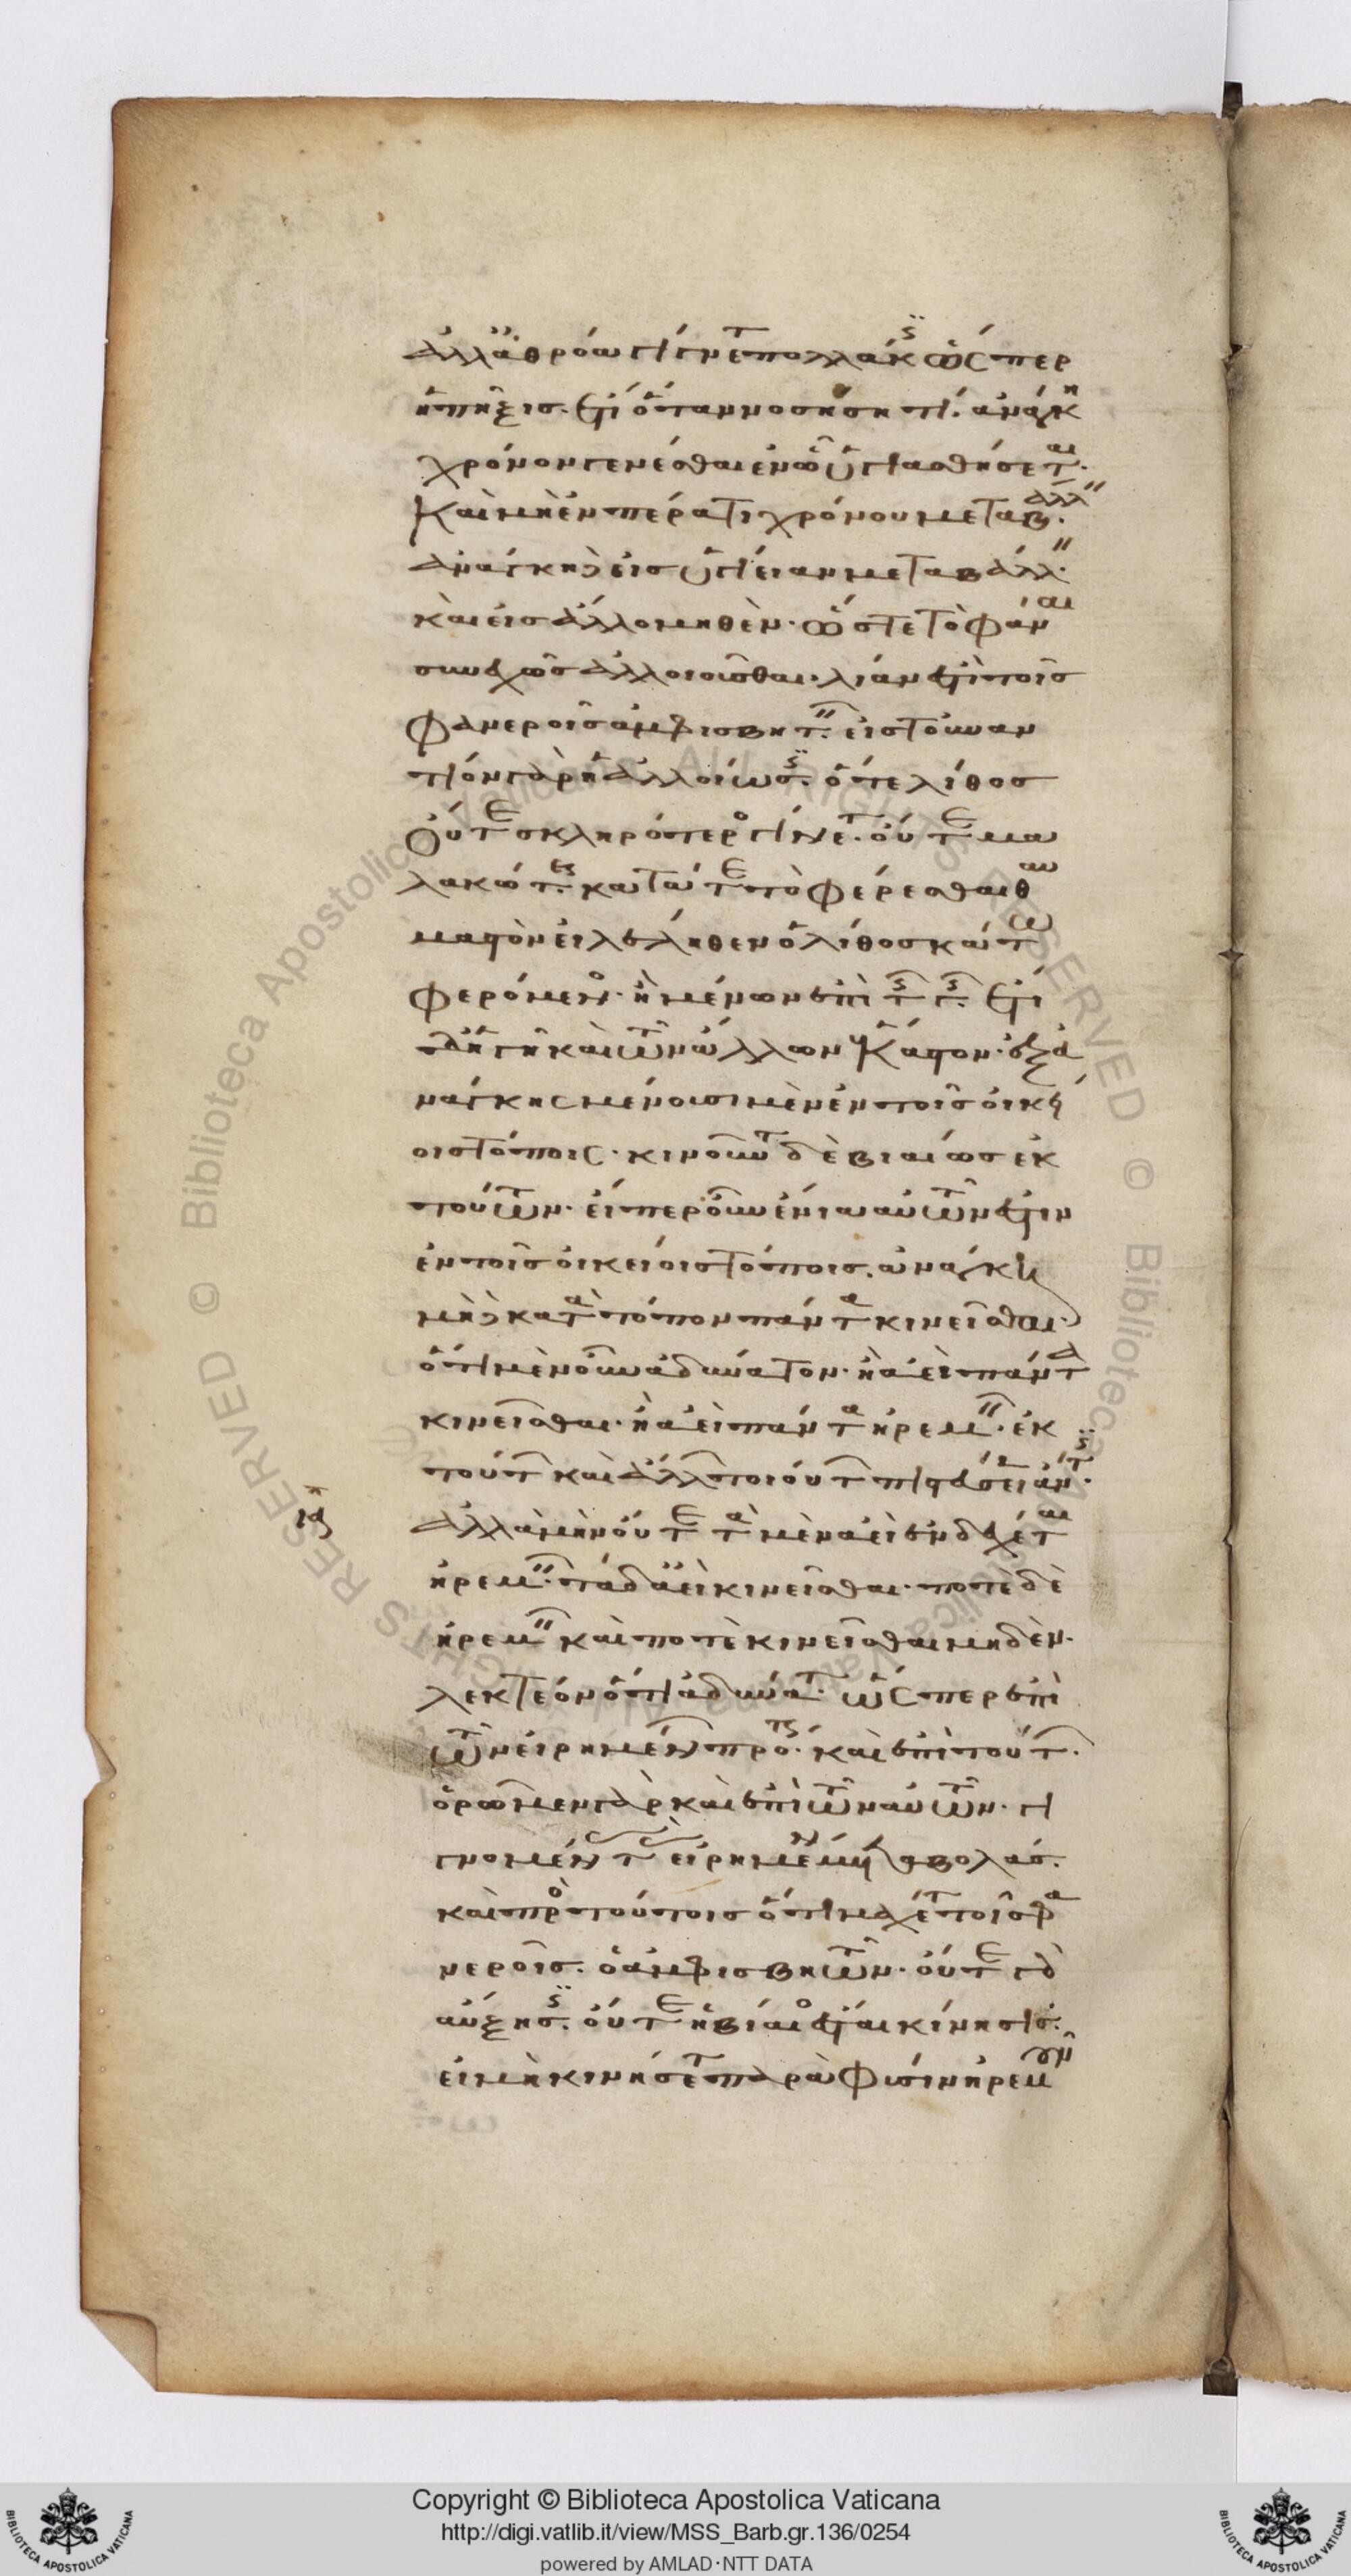 ἀλλ' ἀθρόα γίγνεται πολλάκις ὥσπερ
ἡ πῆξις. ἔτι ὅταν νοσήσῃ τι. ἀνάγκη
χρόνον γενέσθαι ἐν ᾧ ὑγιασθήσεται.
καὶ μὴ ἐν πέρατι χρόνου μεταβάλλειν.
ἀνάγκη δὲ εἰς ὑγίειαν μεταβάλλειν
καὶ εἰς ἄλλο μηθέν. ὥστε τὸ φάναι
συνεχῶς ἀλλοιοῦσθαι. λίαν ἐστὶ τοῖς
φανεροῖς ἀμφισβητεῖν. εἰς τοὐναν
τίον γὰρ ἡ ἀλλοίωσις. ὅ τε λίθος
οὔτε σκληρότερος γίνεται. οὔτε μα
λακώτερος. κατά τε τὸ φέρεσθαι θαυ
μαστὸν εἰ λέληθεν ὁ λίθος κάτω
φερόμενος. ἢ μένων ἐπὶ τῆς γῆς. ἔτι
δ' ἡ γῆ καὶ τῶν ἄλλων ἕκαστον. ἐξ ἀ
νάγκης μένουσι μὲν ἐν τοῖς οἰκεί
οις τόποις. κινοῦνται δὲ βιαίως ἐκ
τούτων. εἴπερ οὖν ἔνια αὐτῶν ἐστιν
ἐν τοῖς οἰκείοις τόποις. ἀνάγκη
μὴ δὲ κατὰ τόπον πάντα κινεῖσθαι.
ὅτι μὲν οὖν ἀδύνατον. ἢ ἀεὶ πάντα
κινεῖσθαι. ἢ ἀεὶ πάντα ἠρεμεῖν. ἐκ
τούτων καὶ ἄλλων τοιούτων πιστεύσειεν ἄν τις.
ἀλλὰ μὴν οὔτε τὰ μὲν ἀεὶ ἐνδέχεται
ἠρεμεῖν. τὰ δ' ἀεὶ κινεῖσθαι. ποτὲ δὲ
ἠρεμεῖν καὶ ποτὲ κινεῖσθαι μηδέν.
λεκτέον ὅτι ἀδύνατον. ὥσπερ ἐπὶ
τῶν εἰρημένων πρότερον. καὶ ἐπὶ τούτων.
ὁρῶμεν γὰρ καὶ ἐπὶ τῶν αὐτῶν. γι
γνομένας τὰς εἰρημένας μεταβολάς.
καὶ πρὸς τούτοις ὅτι μάχεται τοῖς φα
νεροῖς. ὁ ἀμφισβητῶν. οὔτε γὰρ
αὔξησις. οὔτε ἡ βίαιος ἔσται κίνησις.
εἰ μὴ κινήσεται παρὰ φύσιν ἠρεμοῦν